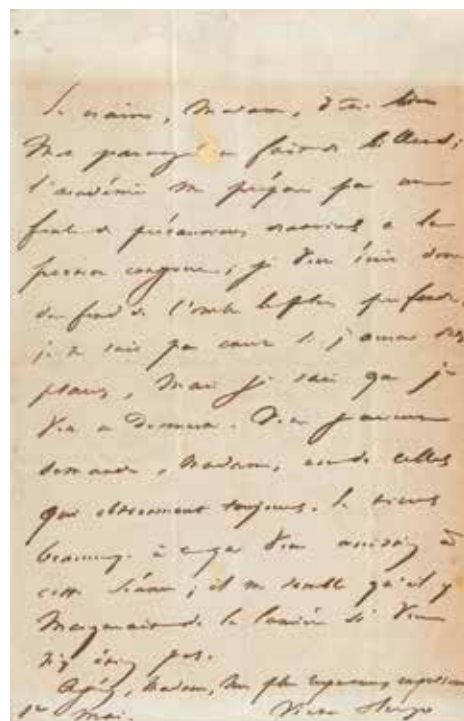 Je crains, Madame, d'être bien
mal partagé en fait de billets;
l'académie m'a préparé par une
foule de précautions oratoires à la
portion congrue; je vous écris donc
du fond de l'ombre la plus profonde,
je ne sais pas encore si j'aurai des
places, mais je sais que je
vous en donnerai. Vous
demandez, Madame, de celles
qui obtiennent toujours. Je tiens
beaucoup à ce que vous assistiez à
cette séance; il me semble qu'il y
manquerait de la lumière si vous
n'y étiez pas.
Agréez, Madame, mes plus respectueux hommages
1er Mai. Victor Hugo